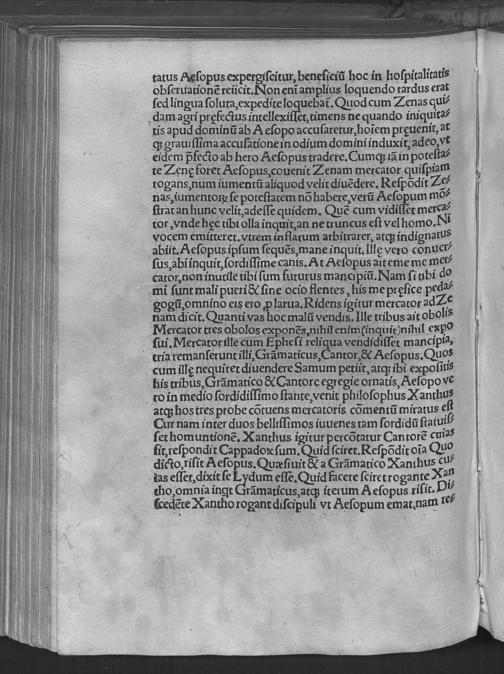 tatus Aesopus expergiscitur, beneficiū hoc in hospitalitatis
obseruationē reiicit. Non enī amplius loquendo tardus erat
sed lingua soluta, expedite loquebať. Quod cum Zenas qui⸗
dam agri pręfectus intellexisset, timens ne quando iniquita⸗
tis apud dominū ab Aesopo accusaretur, hoīem pręuenit, at
qꝫ grauissima accusatione in odium domini induxit, adeo, vt
eidem p̄fecto ab hero Aesopus tradere. Cumqꝫ iā in potesta⸗
te Zenę foret Aesopus, cōuenit Zenam mercator quispiam
rogans, num iumentū aliquod velit diuēdere. Respōdit Ze⸗
nas, iumentorꝫ se potestatem nō habere, verū Aesopum mō⸗
strat an hunc velit, adesse quidem. Quē cum vidisset merca⸗
tor, vnde hęc tibi olla inquit, an ne truncus est vel homo. Ni
vocem emitteret. vtrem inflatum arbitrarer, atqꝫ indignatus
abiit. Aesopus ipsum sequēs, mane inquit. Ille vero conuer⸗
sus, abi inquit, sordissime canis. At Aesopus ait eme me mer⸗
cator, non inutile tibi sum futurus mancipiū. Nam si tibi do
mi sunt mali pueri & sine ocio flentes, his me pręfice peda⸗
gogū, omnino eis ero, p larua. Ridens igitur mercator ad Ze
nam dicit. Quanti vas hoc malū vendis. Ille tribus ait obolis
Mercator tres obolos exponēs, nihil enim (inquit) nihil expo
sui. Mercator ille cum Ephesi reliqua vendidisset mancipia,
tria remanserunt illi, Grāmaticus, Cantor, & Aesopus. Quos
cum illę nequiret diuendere Samum petiit, atqꝫ ibi expositis
his tribus, Grāmatico & Cantore egregie ornatis, Aesopo ve
ro in medio sordidissimo stante, venit philosophus Xanthus
atqꝫ hos tres probe cōtuens mercatoris cōmentū miratus est
Cur nam inter duos bellissimos iuuenes tam sordidū statuis⸗
set homuntionē. Xanthus igitur percōtatur Cantorē cuias
sit, respondit Cappadox sum. Quid sciret. Respōdit oīa Quo
dicto, risit Aesopus. Quæsiuit & a Grāmatico Xanthus cu⸗
ias esset, dixit se Lydum esse. Quid facere sciret rogante Xan
tho, omnia inqt Grāmaticus, atqꝫ iterum Aesopus risit. Di⸗
scedēte Xantho rogant discipuli vt Aesopum emat, nam re⸗